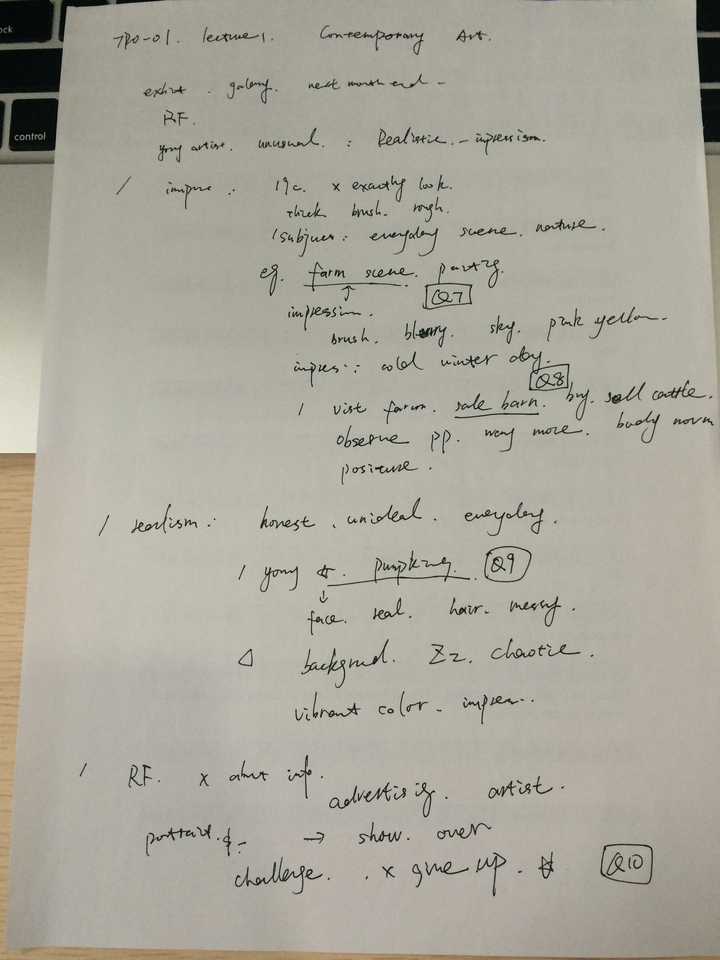 ock
control
TPO-01. lecture1. Contemporary Art.
exhit. galeny. next month end -
RF.
yong artist. unusual. : Realistic. - impressism.
/ impre : 19c. x exactly look.
thick brush. rough.
/ subject : everyday scene. nature.
eg. farm scene. painting.
↑ Q7
impression.
brush. blurry. sky. pink yellow.
impres : cold winter day.
Q8
/ visit farm. sale barn. buy. sell cattle.
observe pp. way move. body
positure.
/ realism : honest. unideal. everyday.
/ yong ☆. Q9
↓
face. real. hair. messy.
△ backgrud. Zz. chaotic.
vibrant color - impres..
/ RF. x abut info.
advertisig. artist.
portrait. &- → show. over
challenge. . x give up. Q10